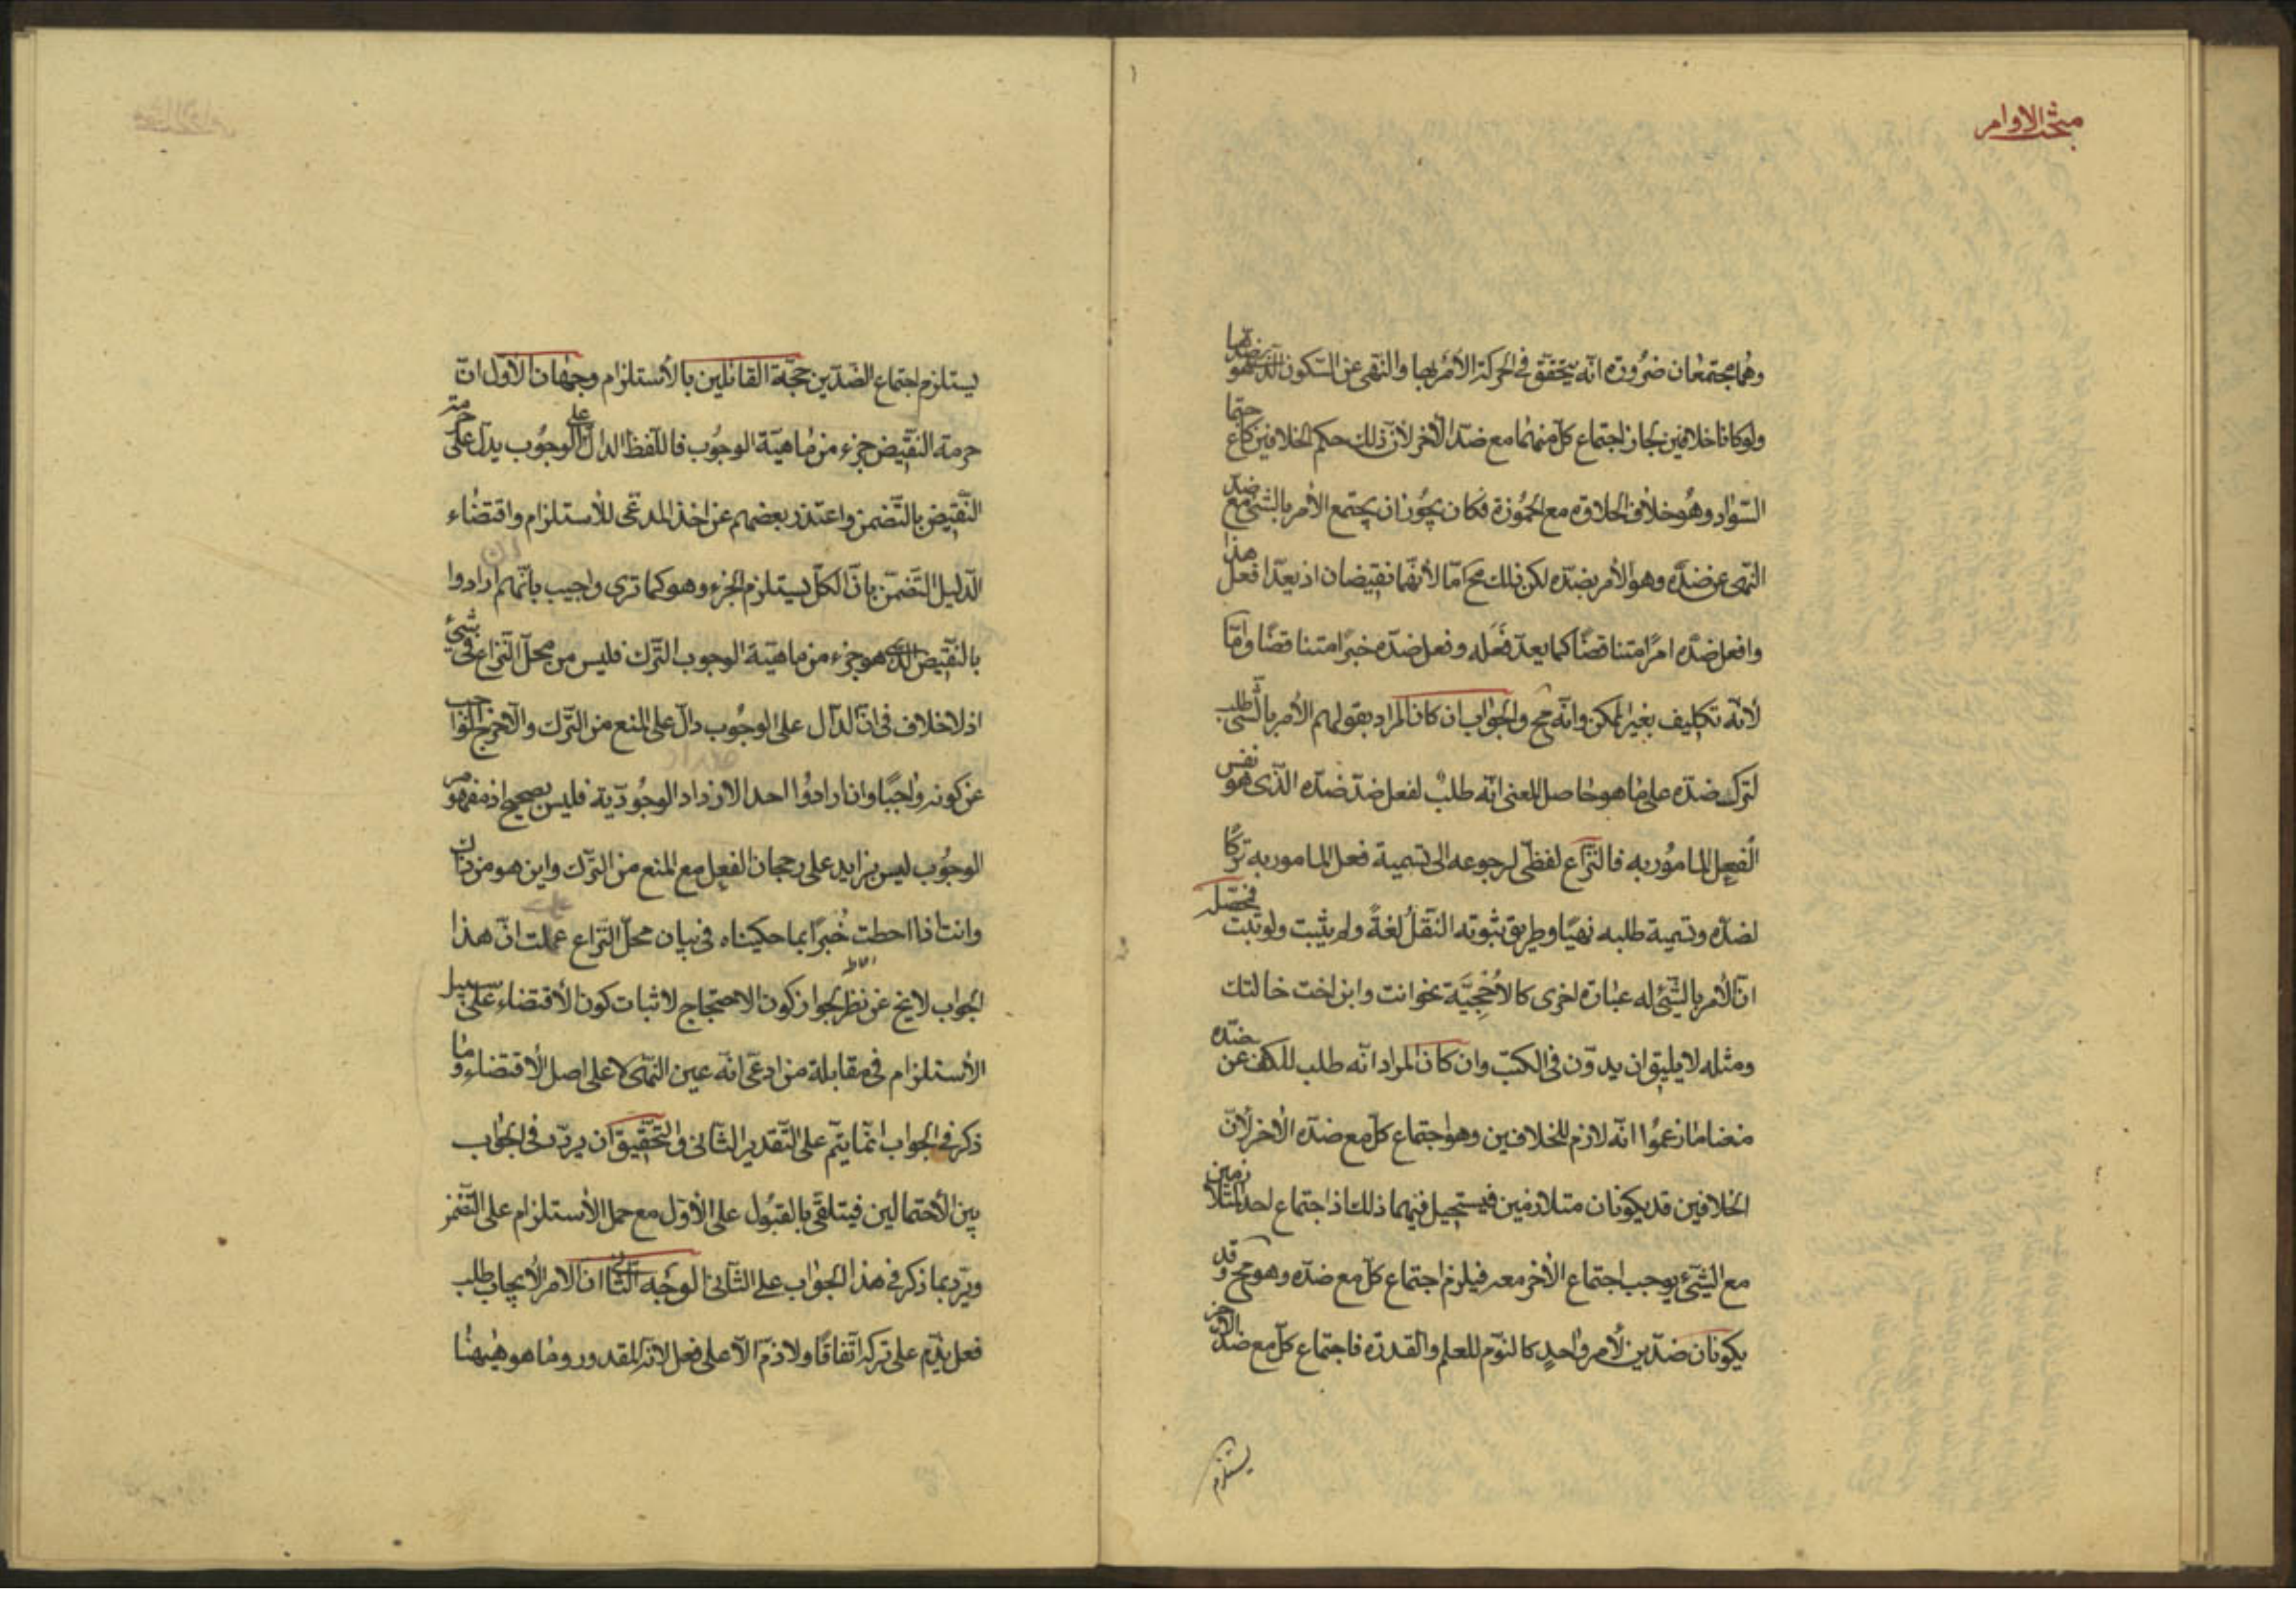 مبحث الاوامر
وهما مجتمعان ضرورة انه يتحقق فى الحركة الأمر بها والنهى عن السكون الذى هو ضدها
ولو كانا خلافين لجاز اجتماع كل منهما مع ضد الآخر لأن ذلك حكم الخلافين كاجتماع
السواد وهو خلاف الحلاوة مع الحموزة فكان يجوز ان يجتمع الأمر بالشئ مع ضد
النهى عن ضده وهو الأمر بضده لكن ذلك مح امّا لأنهما نقيضان اذ يعدّ افعل هذا
وافعل ضده امرًا متناقضًا كما يعدّ فعله وفعل ضده خبرًا متناقضًا وامّا
لأنه تكليف بغير الممكن وانه مح والجواب ان كان المراد بقولهم الأمر بالشئ طلب
لترك ضده على ما هو حاصل المعنى انه طلب لفعل ضد ضده الذى هو نفس
الفعل المامور به فالنزاع لفظى لرجوعه الى تسمية فعل المامور به تركًا
لضده وتسمية طلبه نهيًا وطريق ثبوته النقل لغةً ولم يثبت ولو ثبت فمحصله
ان الأمر بالشئ له عبارة اخرى كالأحجيّة نحو انت وابن اخت خالتك
ومثله لا يليق ان يدوّن فى الكتب وان كان المراد انه طلب للكف عن ضده
منعنا ما زعموا انه لازم للخلافين وهو اجتماع كل مع ضده الآخر لأن
الخلافين قد يكونان متلازمين فيستحيل فيهما ذلك اذ اجتماع احد المتلازمين
مع الشئ يوجب اجتماع الآخر معه فيلزم اجتماع كل مع ضده وهو مح وقد
يكونان ضدين لأمر واحدٍ كالنوم للعلم والقدرة فاجتماع كل مع ضد الآخر
يستلزم
يستلزم اجتماع الضدين حجة القائلين بالأستلزام وجهان الأول انّ
حرمة النقيض جزء من ماهية الوجوب فاللفظ الدال على الوجوب يدل على حرمة
النقيض بالتضمن واعتذر بعضهم عن اخذ المدعى للأستلزام واقتضاء
الدليل التضمن بان الكل يستلزم الجزء وهو كما ترى واجيب بانهم ارادوا
بالنقيض الذى هو جزء من ماهية الوجوب الترك فليس من محل النزاع فى شئ
اذ لا خلاف فى ان الدال على الوجوب دال على المنع من الترك والا خرج الواجب
عن كونه واجبًا وان ارادوا احد الاضداد الوجودية فليس بصحيح اذ مفهوم
الوجوب ليس بزايد على رجحان الفعل مع المنع من الترك واين هو من ذاك
وانت اذا احطت خُبرًا بما حكيناه فى بيان محل النزاع علمت ان هذا
الجواب لا يخ عن نظر لجواز كون الاحتجاج لاثبات كون الأقتضاء على سبيل
الأستلزام فى مقابلة من ادعى انه عين النهى لا على اصل الاقتضاء وما
ذكر فى الجواب انما يتم على التقدير الثانى والتحقيق ان يردّد فى الجواب
بين الأحتمالين فيتلقى بالقبول على الأول مع حمل الأستلزام على التضمن
ويردّ بما ذكر فى هذا الجواب على الثانى الوجه الثانى ان الامر الأيجاب طلب
فعل يذم على تركه اتفاقًا ولا ذم الا على فعل لانه المقدور وما هو هيهنا